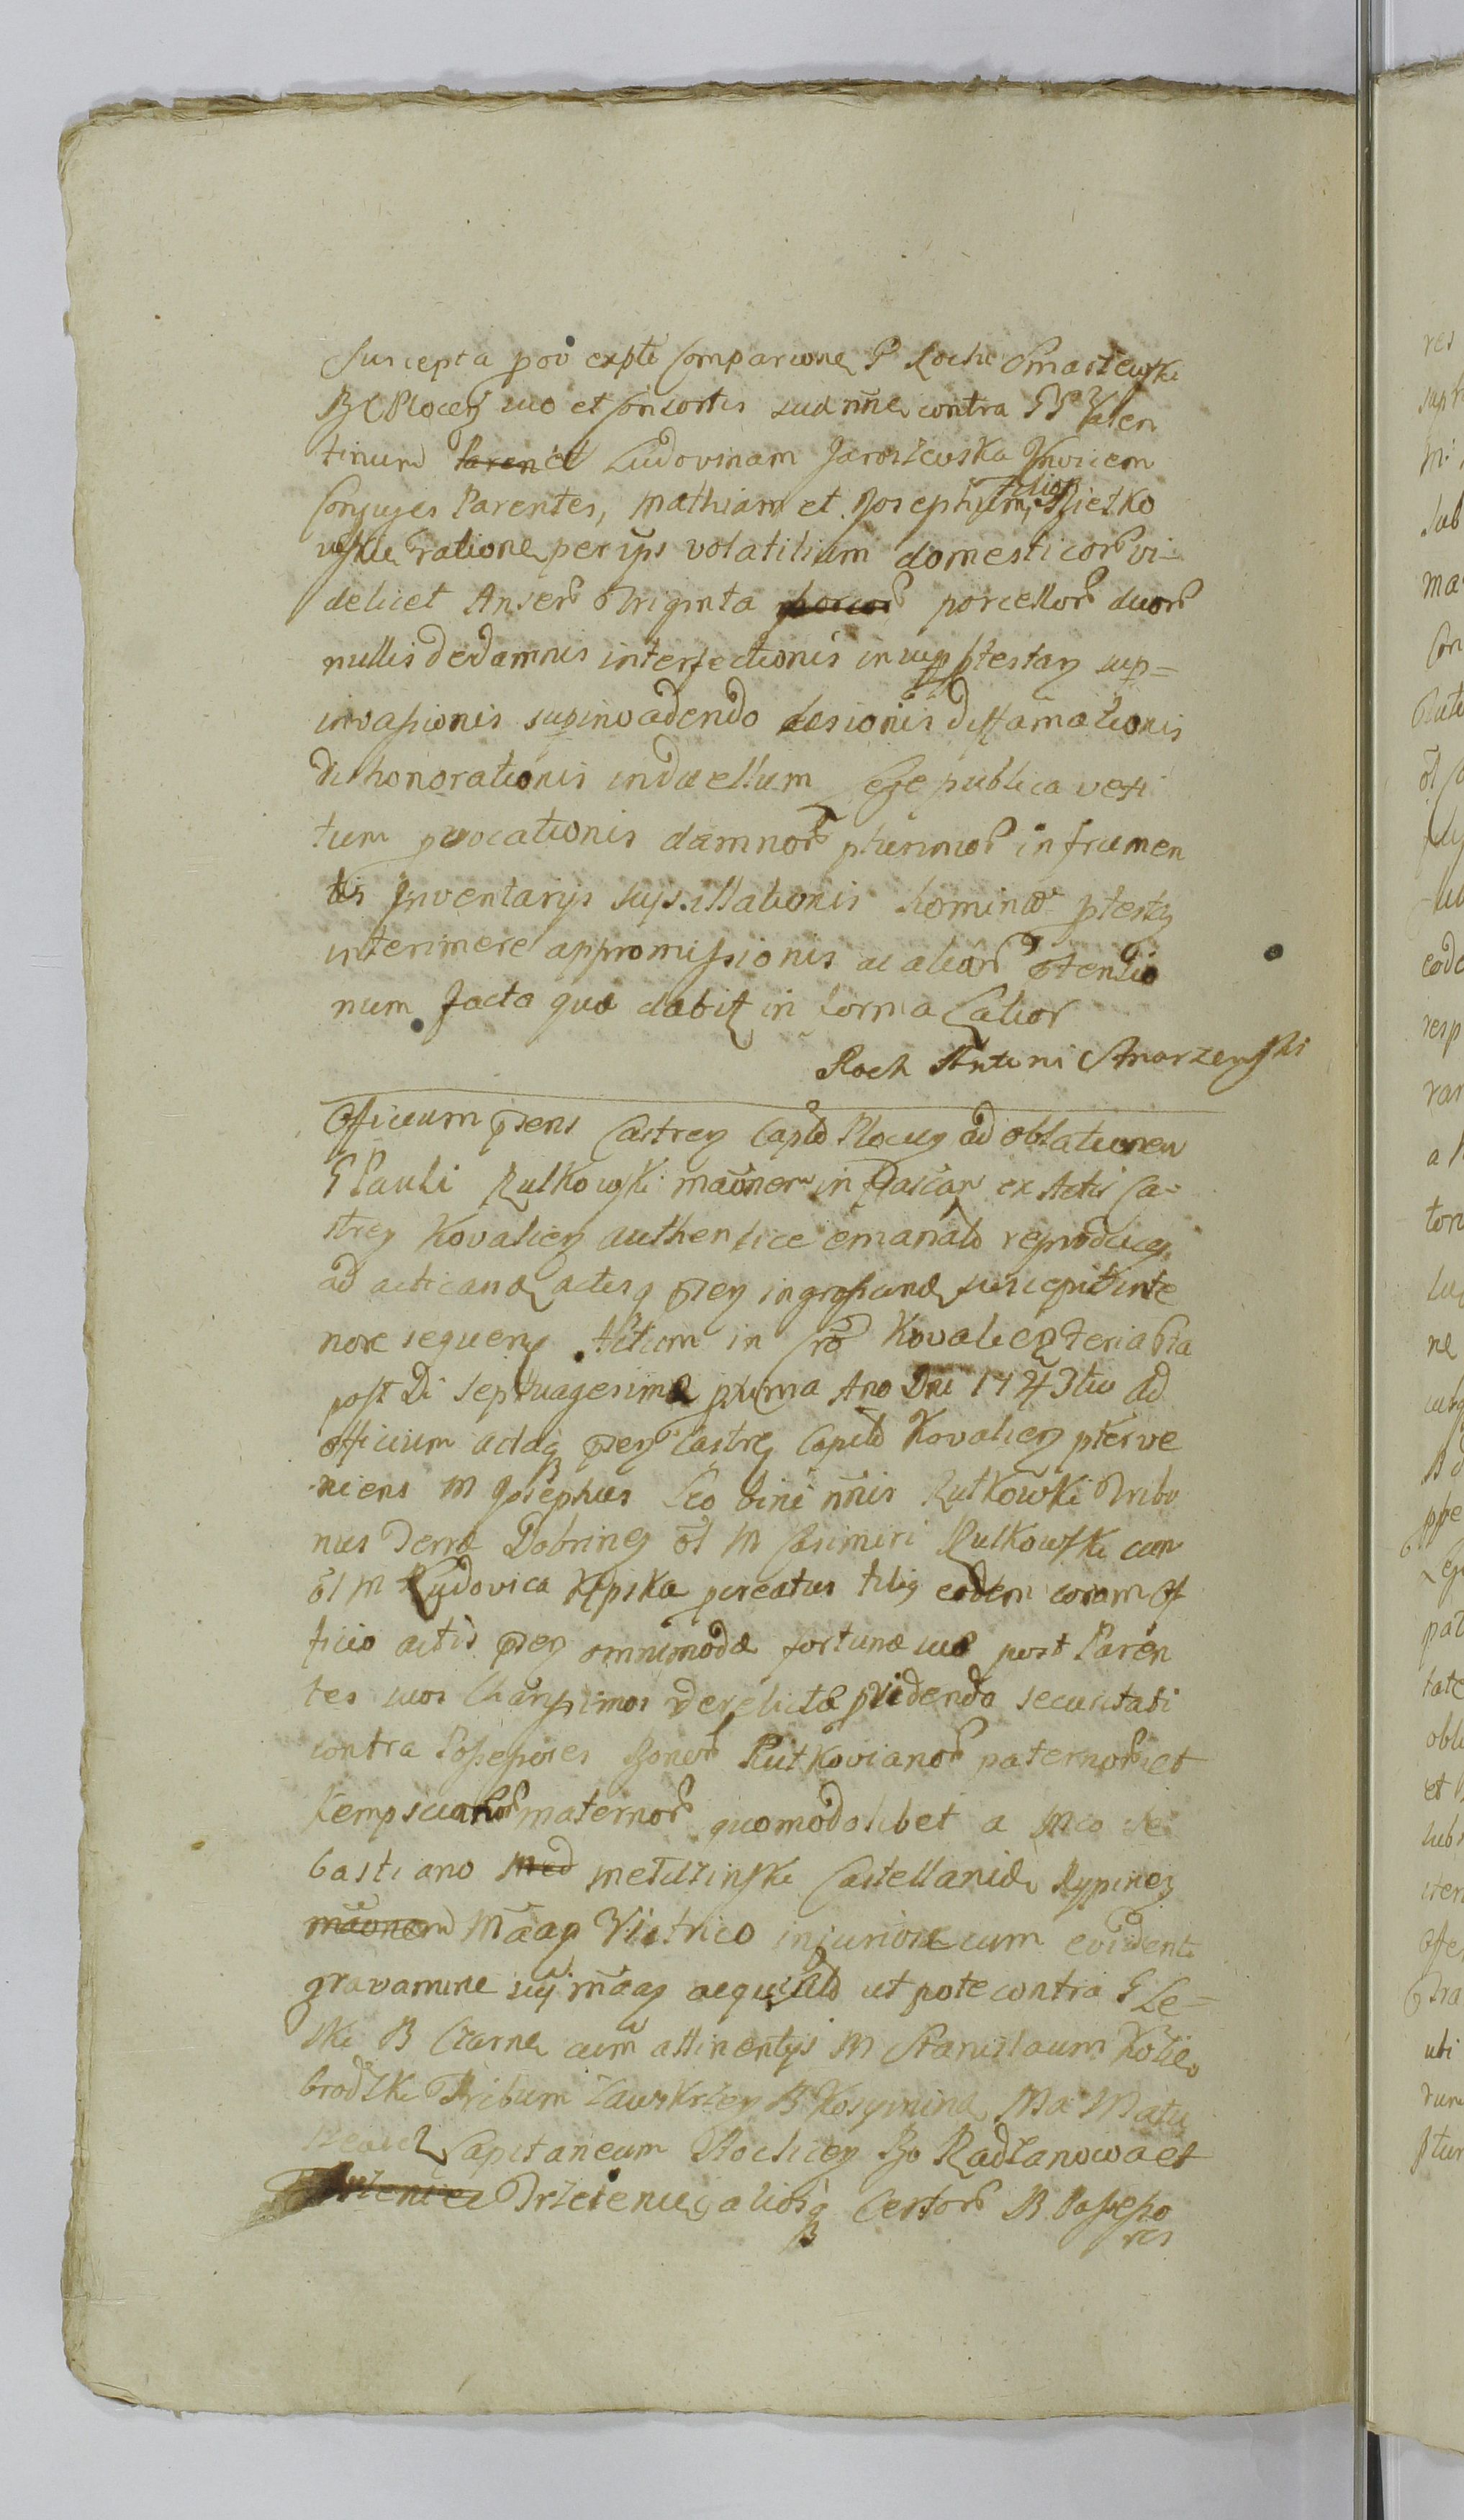 Suscepta pov expte Comparione G Rochi Smarzewski
B C Plocen suo et Consortis sua nne contra GG Valen
tinum et Ludovinam Jaroszewska Invicem
Conjuges Parentes, Mathiam et Josephum Filios Pietko
wskie ratione per ips volatilium domesticor vi-
delicet Anser Triginta porcellor duor
nullis de damnis interfectionis in sup ptestan sup=
invasionis supinvadendo lesionis diffamationis
dehonorationis in duellum Lege publica veti
tum pvocationis damnor plurimor in frumen
tis Inventarys sugillationis homine ptestan
interimere appromissionis ac alior ptensio
num facta qua dabit in forma Latior
Roch Antoni Smarzewski
Officium psens Castren Capld Plocen ad oblationem
G Pauli Rutkowski maonem in Parcan ex Actis Ca=
stren Kovalien authentice emanato reproducen
ad acticand actisq psen ingrossand suscepit in te
nore sequen Actum in Cro Kovalien feria 6ta
post Di Septuagesima pxima Ano Dni 1743tio Ad
officium actaq psen Castren Capld Kovalien pter ve
niens M Josephus Leo bini nnis Rutkowski Tribu
nus Terra Dobrinen ol M Casimiri Rutkowski cum
ol M Ludovica Kępska pcreatus filiq eodem coram Of
ficio actis psen omnimoda fortuna sua post Paren
tes suos Charissimos derelicta pvidendo securitati
contra Possessores Bonor Rutkovianor paternor et
Kempscianor maternor quomodolibet a Mco Se
bastiano Med Metelzinski Castellanid Rypinen
maonem Maap Vitrico injuriose cum evidenti
gravamine suj maap aequisito ut pote contra G Le=
ski B Czarne cum attinentys M Stanislaum Kolie
brodzki Tribum Zawskrzen B Kosymina Ma Matu
Capitaneum Stoclicen Bo Radzanowa et
Trzcienie aliosq Certor B Possesso
res